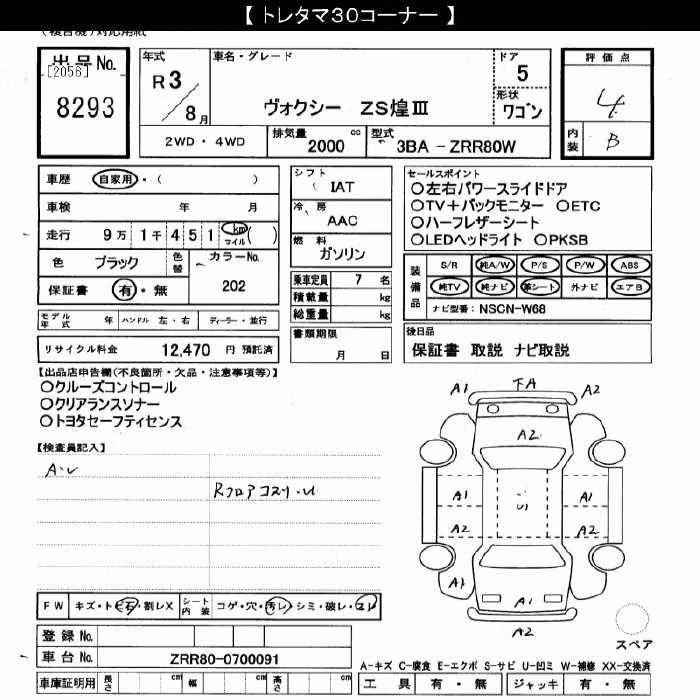 【 トレタマ30コーナー 】
(複合機)対応用紙
出品No.
[2056]
8293
年式
R3/8月
車名・グレード
ヴォクシー ZS煌Ⅲ
ドア
5
形状
ワゴン
評価点
4
内装
B
2WD・4WD
排気量
2000
cc
型式
3BA-ZRR80W
車歴
自家用・( )
車検 年 月
走行 9万 1千 4 5 1 km マイル ( )
色 ブラック
色替
カラーNo.
202
保証書 有・無
シフト
IAT
冷房
AAC
燃料
ガソリン
乗車定員 7 名
積載量 kg
総重量 kg
書類期限
月 日
セールスポイント
○左右パワースライドドア
○TV+バックモニター ○ETC
○ハーフレザーシート
○LEDヘッドライト ○PKSB
装備品
S/R 純A/W P/S P/W ABS
純TV 純ナビ 革シート 外ナビ エアB
ナビ型番: NSCN-W68
モデル年式 年 ハンドル 左・右 ディーラー・並行
リサイクル料金 12,470 円 預託済
後日品
保証書 取説 ナビ取説
【出品店申告欄(不良箇所・欠品・注意事項等)】
○クルーズコントロール
○クリアランスソナー
○トヨタセーフティセンス
【検査員記入】
A・U
Rフロアコスリ・U
A1 下A A2
A2
A1 A1
A2 A2
A1
A2
A1
A2
スペア
FW キズ・トビ石・割レX
シート内装 コゲ・穴・汚レ・シミ・破レ・スレ
登録No.
車台No. ZRR80-0700091
車庫証明用 長さ cm 幅 cm 高さ cm
A-キズ C-腐食 E-エクボ S-サビ U-凹ミ W-補修 XX-交換済
工具 有・無 ジャッキ 有・無